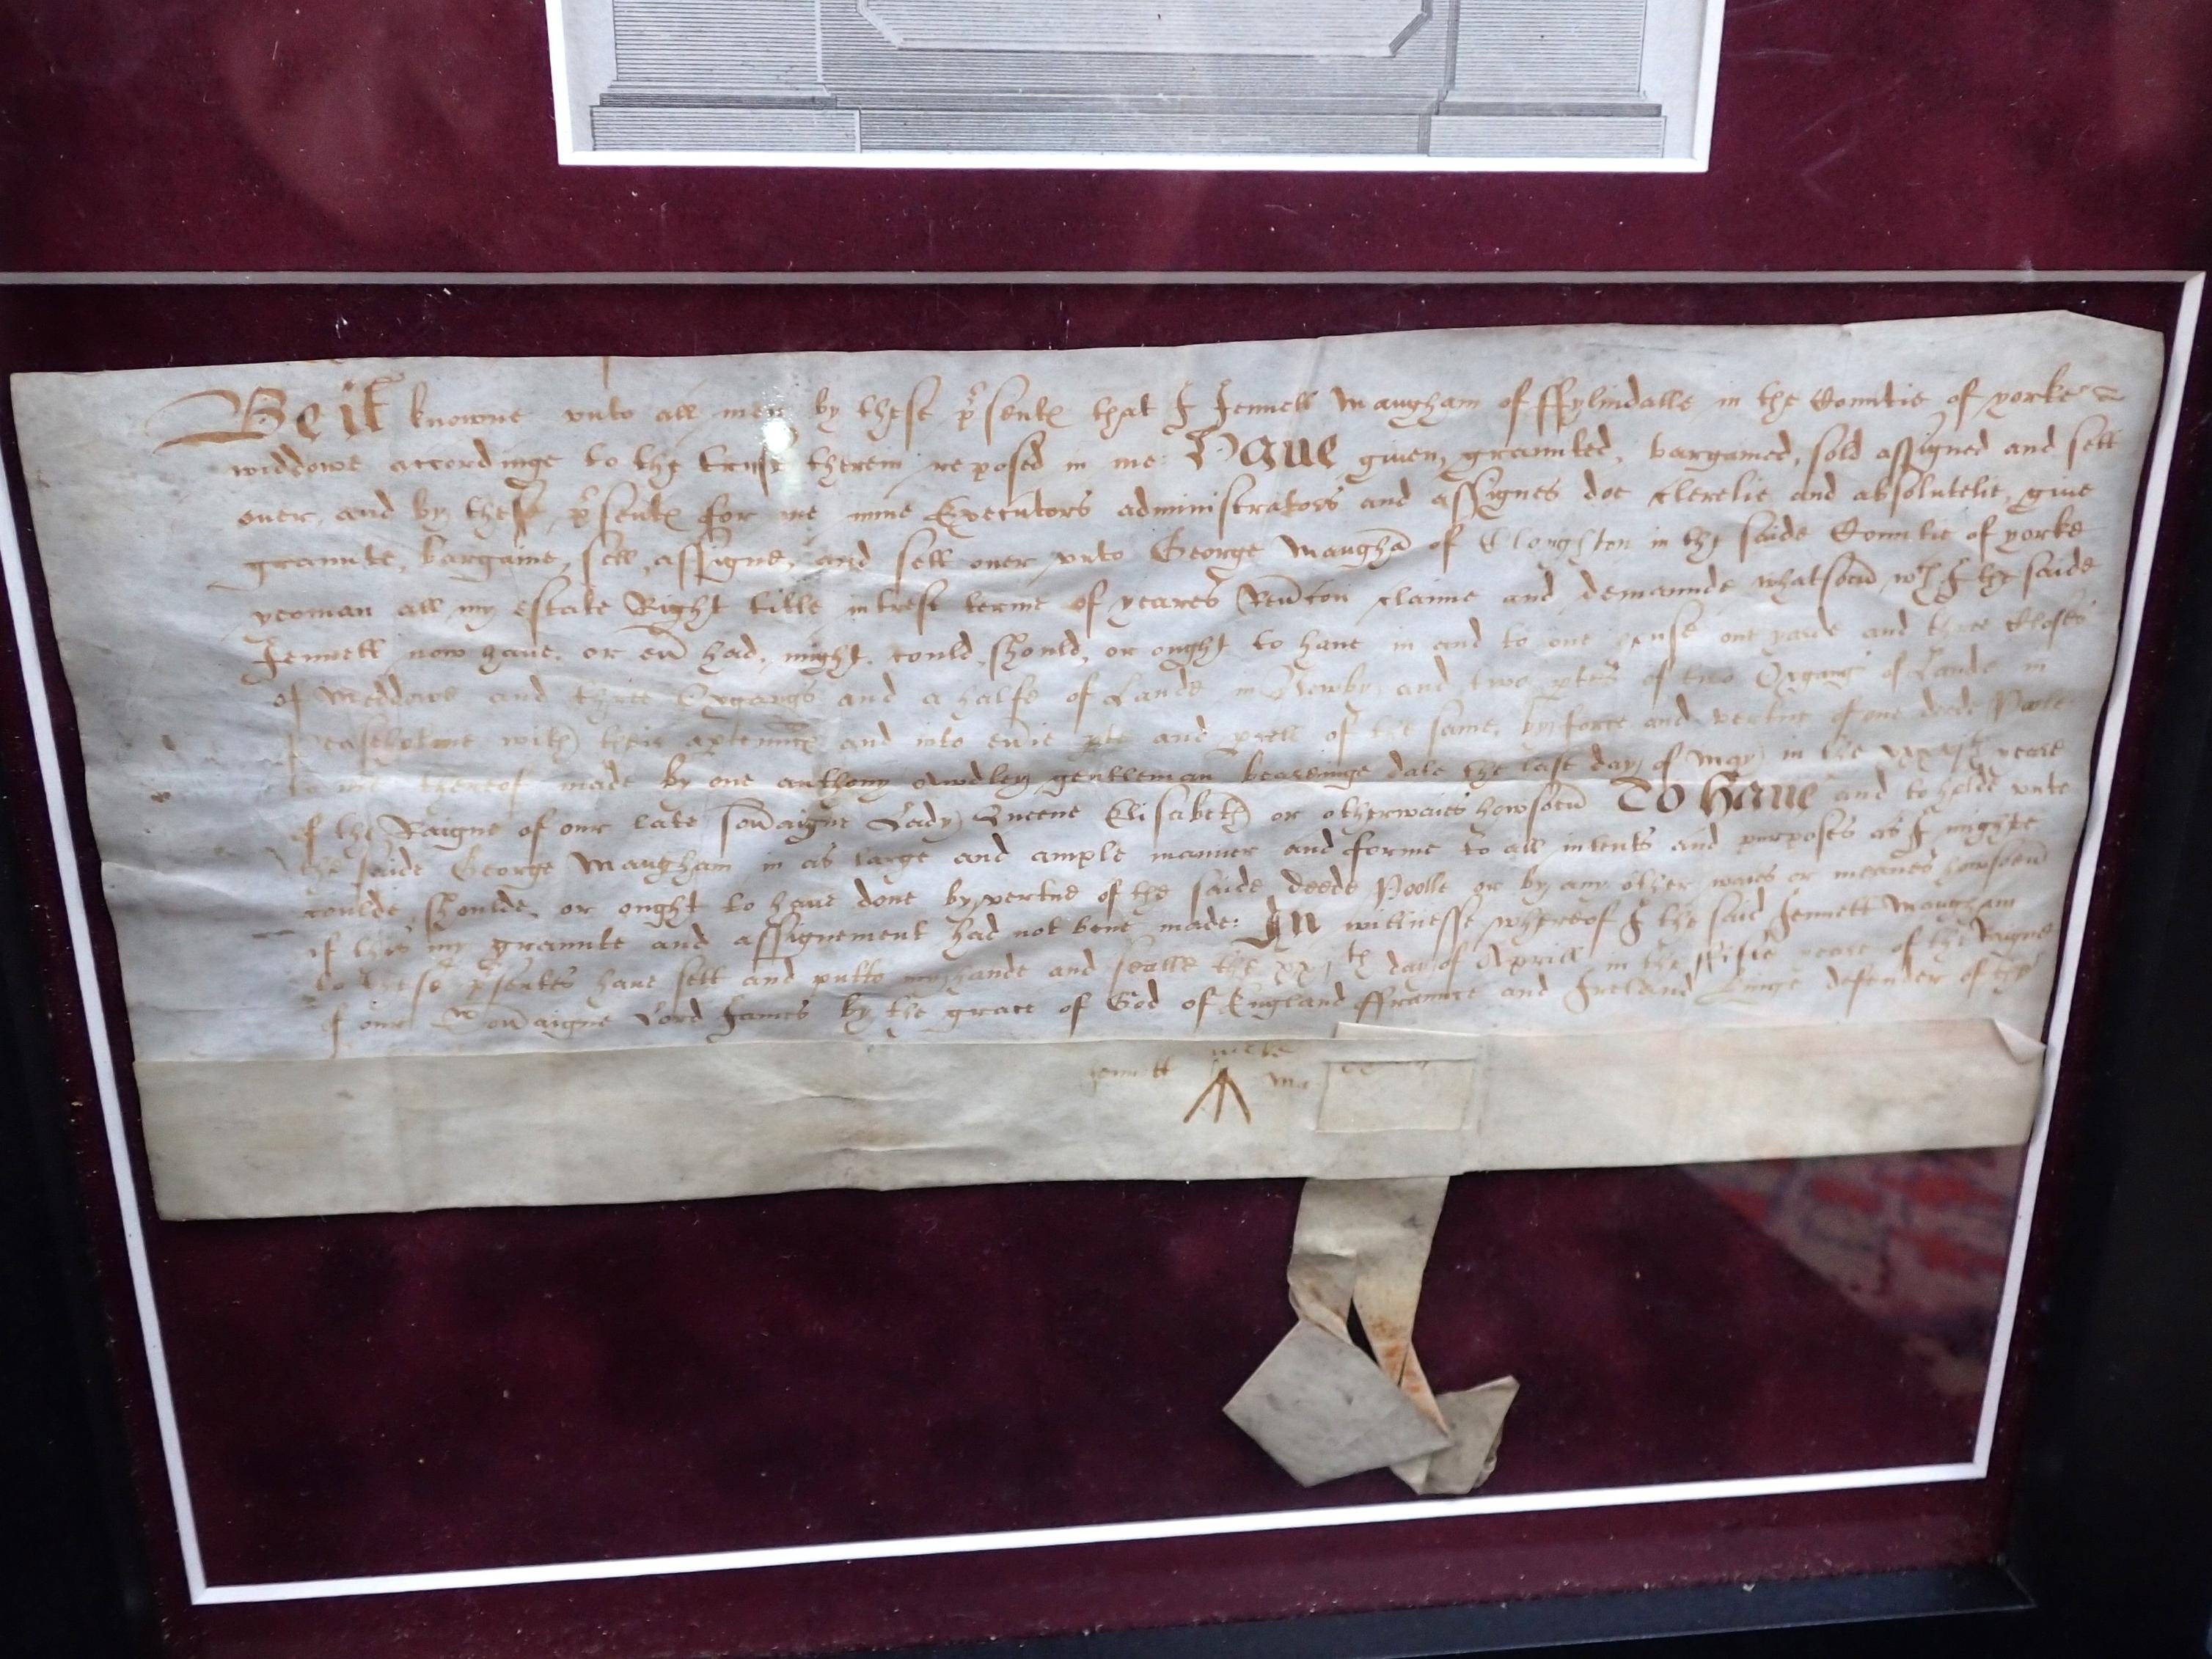 Be it knowne vnto all men by these psents that I Jennett Maugham of ffylindalle in the Countie of yorke
widdowe accordinge to the trust therein reposed in me: Haue giuen, graunted, bargained, sold assigned and sett
ouer, and by these psents for me mine Executors administrators and assignes doe clerelie and absolutelie, giue
graunte, bargaine, sell, assigne, and sett ouer vnto George Maugha of Cloughton in the saide Countie of yorke
yeoman all my estate Right title intrest terme of yeares Reucon claime and demaunde whatsoeu wch I the saide
Jennett now haue, or eu had, might, could, should, or ought to haue in and to one house one yarde and three Closes
of meddowe and three Oxgangs and a halfe of Lande in Newby, and two ptes of two Oxgangs of Lande in
Peaseholme with their aptennces and into euie pte and pcell of the same, by force and vertue of one deede Poole
to me thereof made by one anthony Awdley gentleman bearinge date the last day of May in the yeare
of the Raigne of our late souaigne Lady Queene Elisabeth or otherwaies howsoeu To Haue and to holde vnto
the saide George Maugham in as large and ample manner and forme to all intents and purposes as I mighte
coulde, shoulde, or ought to haue done by vertue of the saide deede Poolle or by any other waies or meanes howsoeu
if this my graunte and assignement had not bene made: In wittnesse whereof I the said Jennett Maugham
to these psentes haue sett and putto my hande and sealle the day of Aprill in the yeare of the Raigne
of our Souaigne Lord James by the grace of God of England ffraunce and Ireland Kinge defender of the
Jennett Ma